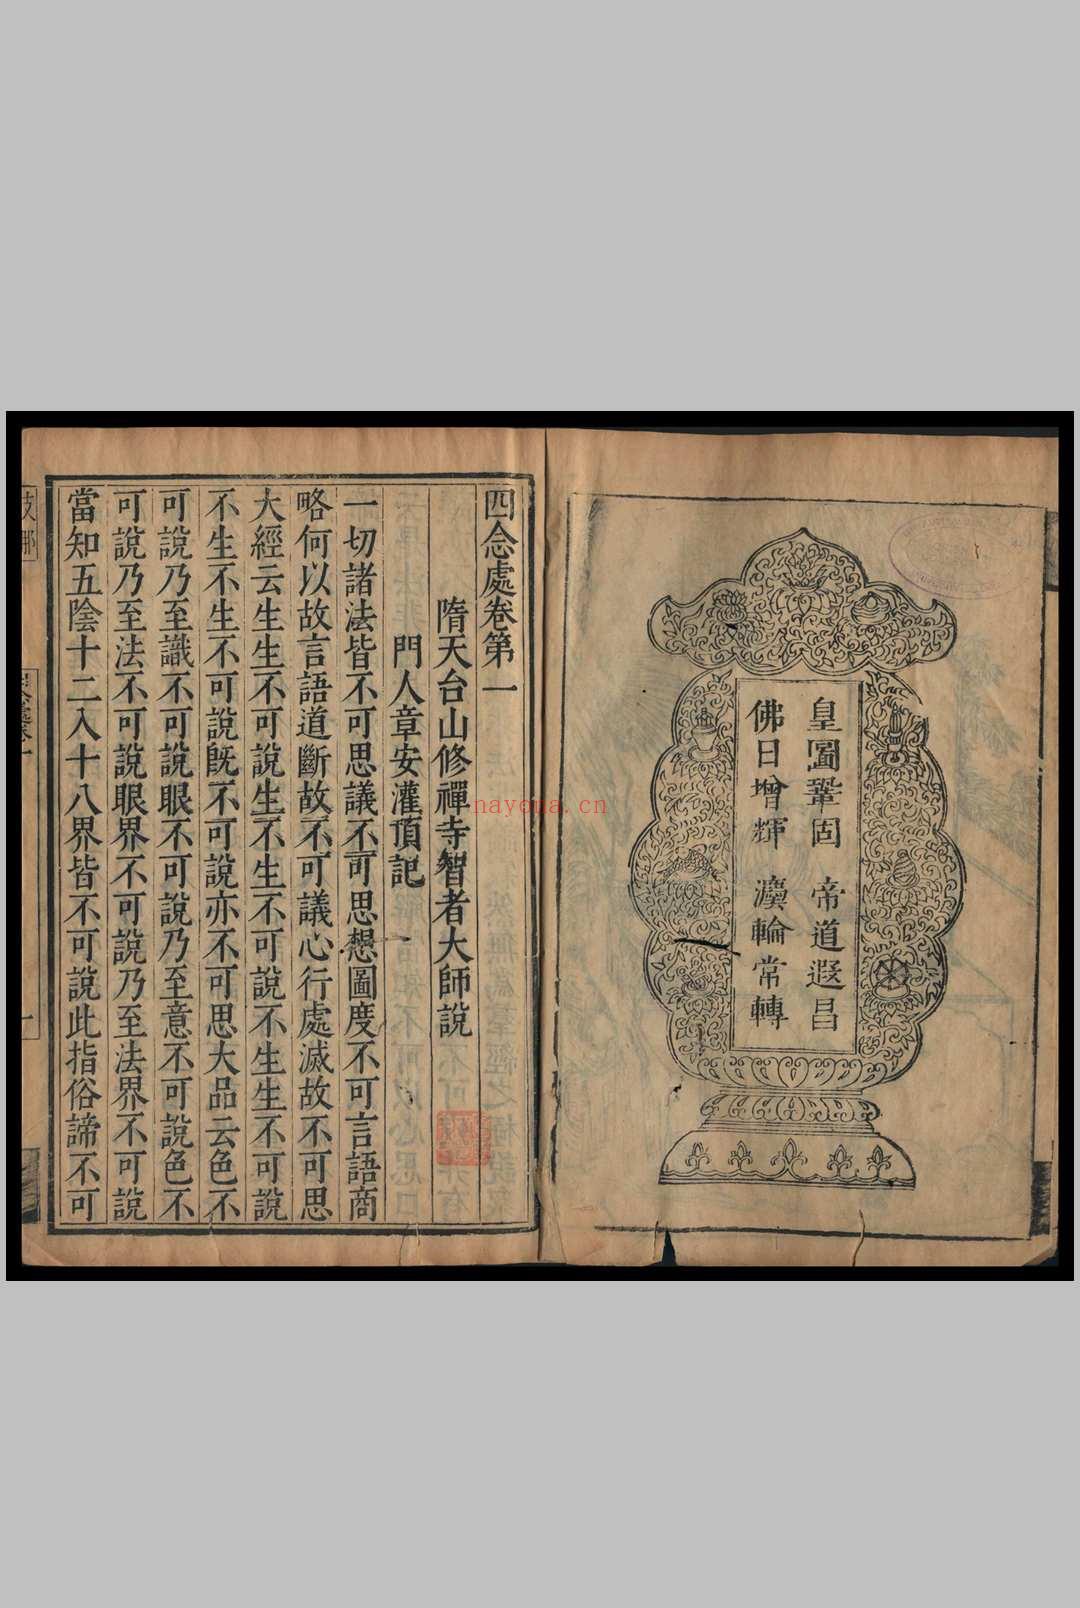 皇圖鞏固 帝道遐昌
佛日增輝 灋輪常轉
四念處卷第一
隋天台山修禪寺智者大師說
門人章安灌頂記
一切諸法皆不可思議不可思想圖度不可言語商
略何以故言語道斷故不可議心行處滅故不可思
大經云生生不可說生不生不可說不生生不可說
不生不生不可說旣不可說亦不可思大品云色不
可說乃至識不可說眼不可說乃至意不可說色不
可說乃至法不可說眼界不可說乃至法界不可說
當知五陰十二入十八界皆不可說此指俗諦不可
nayona.cn